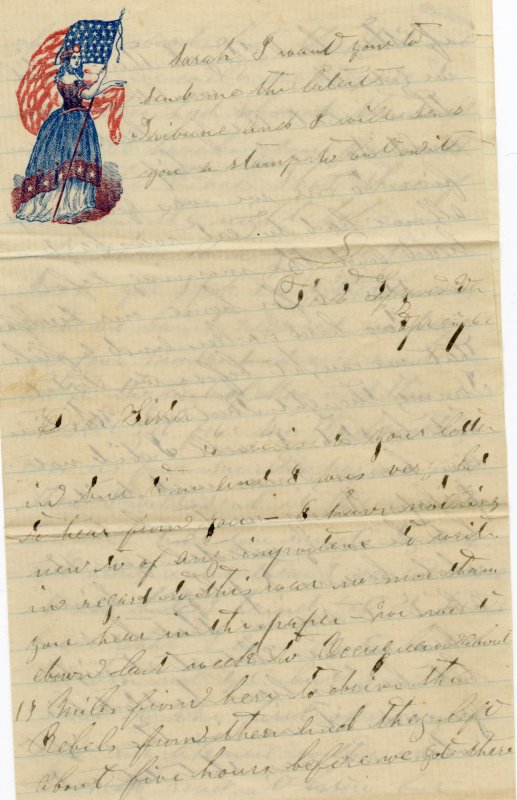 Sarah I want you to
send me the latest
Tribune and I will send
you a stamp to put on it
Sister
I received your letter
in due time and I was very glad
to hear from you — I have nothing
new to of any importene to writ
in regard to this war no mor than
you hear in the paper — we went
down last week to Occuquan about
17 Miles from here to drive the
Rebels from ther and they left
about five hours before we got there